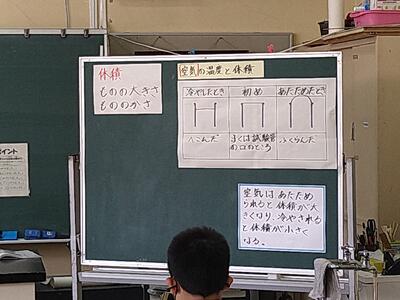 体積
ものの大きさ
もののかさ
空気の温度と体積
冷やしたとき
初め
あたためたとき
へこんだ
まくは試験管
の口のところ
ふくらんだ
空気は、あたため
られると体積が大
きくなり、冷やされる
と体積が小さく
なる。
ポイント